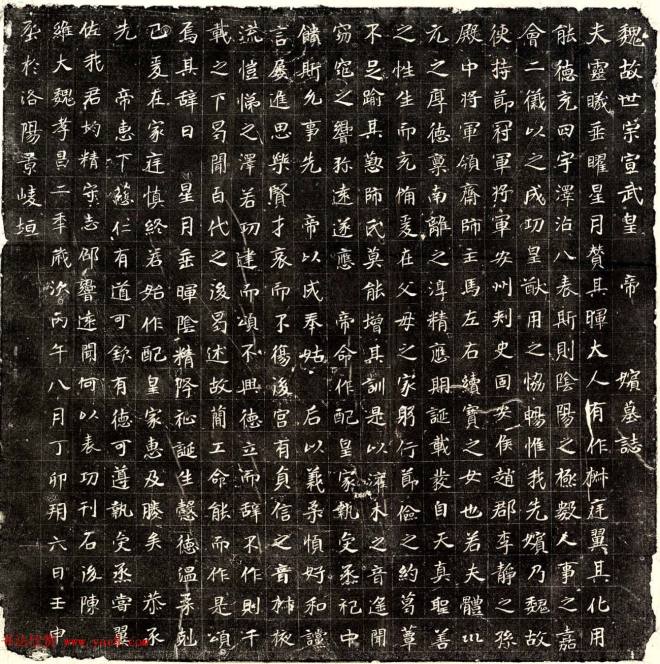 魏故世宗宣武皇 帝 嬪墓誌
夫靈曦垂曜星月贊其暉大人有作椒庭翼其化用
能德充四宇澤沾八表斯則陰陽之極數人事之嘉
會二儀以之成功皇猷用之恊暢惟我先嬪乃魏故
使持節冠軍將軍安州刾史固安侯趙郡李靜之孫
殿中將軍領齋師主馬左右續寶之女也若夫體
元之厚德稟南離之淳精應期誕載發自天真聖善
之性生而充俻爰在父母之家躬行節儉之約葛蕈
不足踰其懃師氏莫能增其訓是以濯木之音遠聞
窈窕之響弥遠遂應 帝命作配皇家執爨烝祀中
饋斯允事先 帝以成奉姑 后以義柔慎好和讜
言屢進思樂賢才哀而不傷後宮有貞信之音椒掖
流愷悌之澤若功建而頌不興德立而辞不作則千
載之下曷聞百代之後曷述故簡工命能而作是頌
焉其辞曰 星月垂暉陰精降祉誕生懿德溫柔剋
己爰在家庭慎終若始作配皇家惠及媵矣 恭承
先 帝惠下慈仁有道可欽有德可遵執爨烝嘗翼
佐我君均精守志邵響遠聞何以表功刊石後陳
維大魏孝昌二年歲次丙午八月丁卯朔六日壬申
窆於洛陽景崚垣